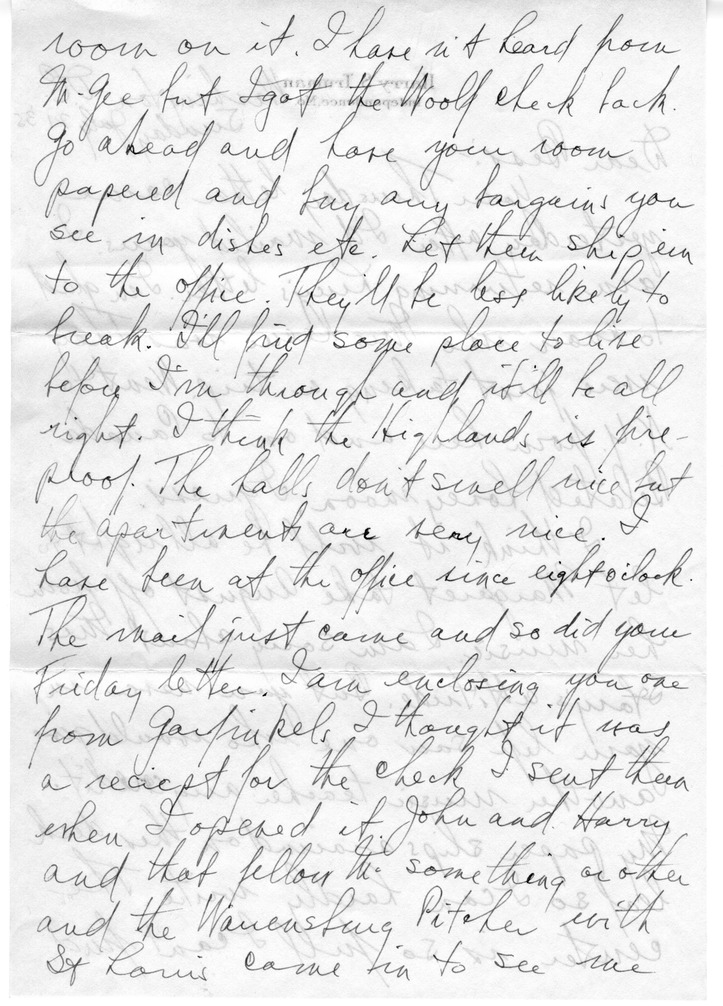 room on it. I have n't heard from
McGee but I got the Woolf check back.
Go ahead and have your room
papered and buy any bargains you
see in dishes etc. Let them ship 'em
to the office. They'll be less likely to
break. I'll find some place to live
before I'm through and it'll be all
right. I think the Highlands is fire-
proof. The halls don't smell nice but
the apartments are very nice. I
have been at the office since eight o'clock.
The mail just came and so did your
Friday letter. I am enclosing you one
from Garfinkels. I thought it was
a reciept for the check I sent them
when I opened it. John and Harry
and that fellow Mc something or other
and the Warrensburg Pitcher with
St Louis came in to see me